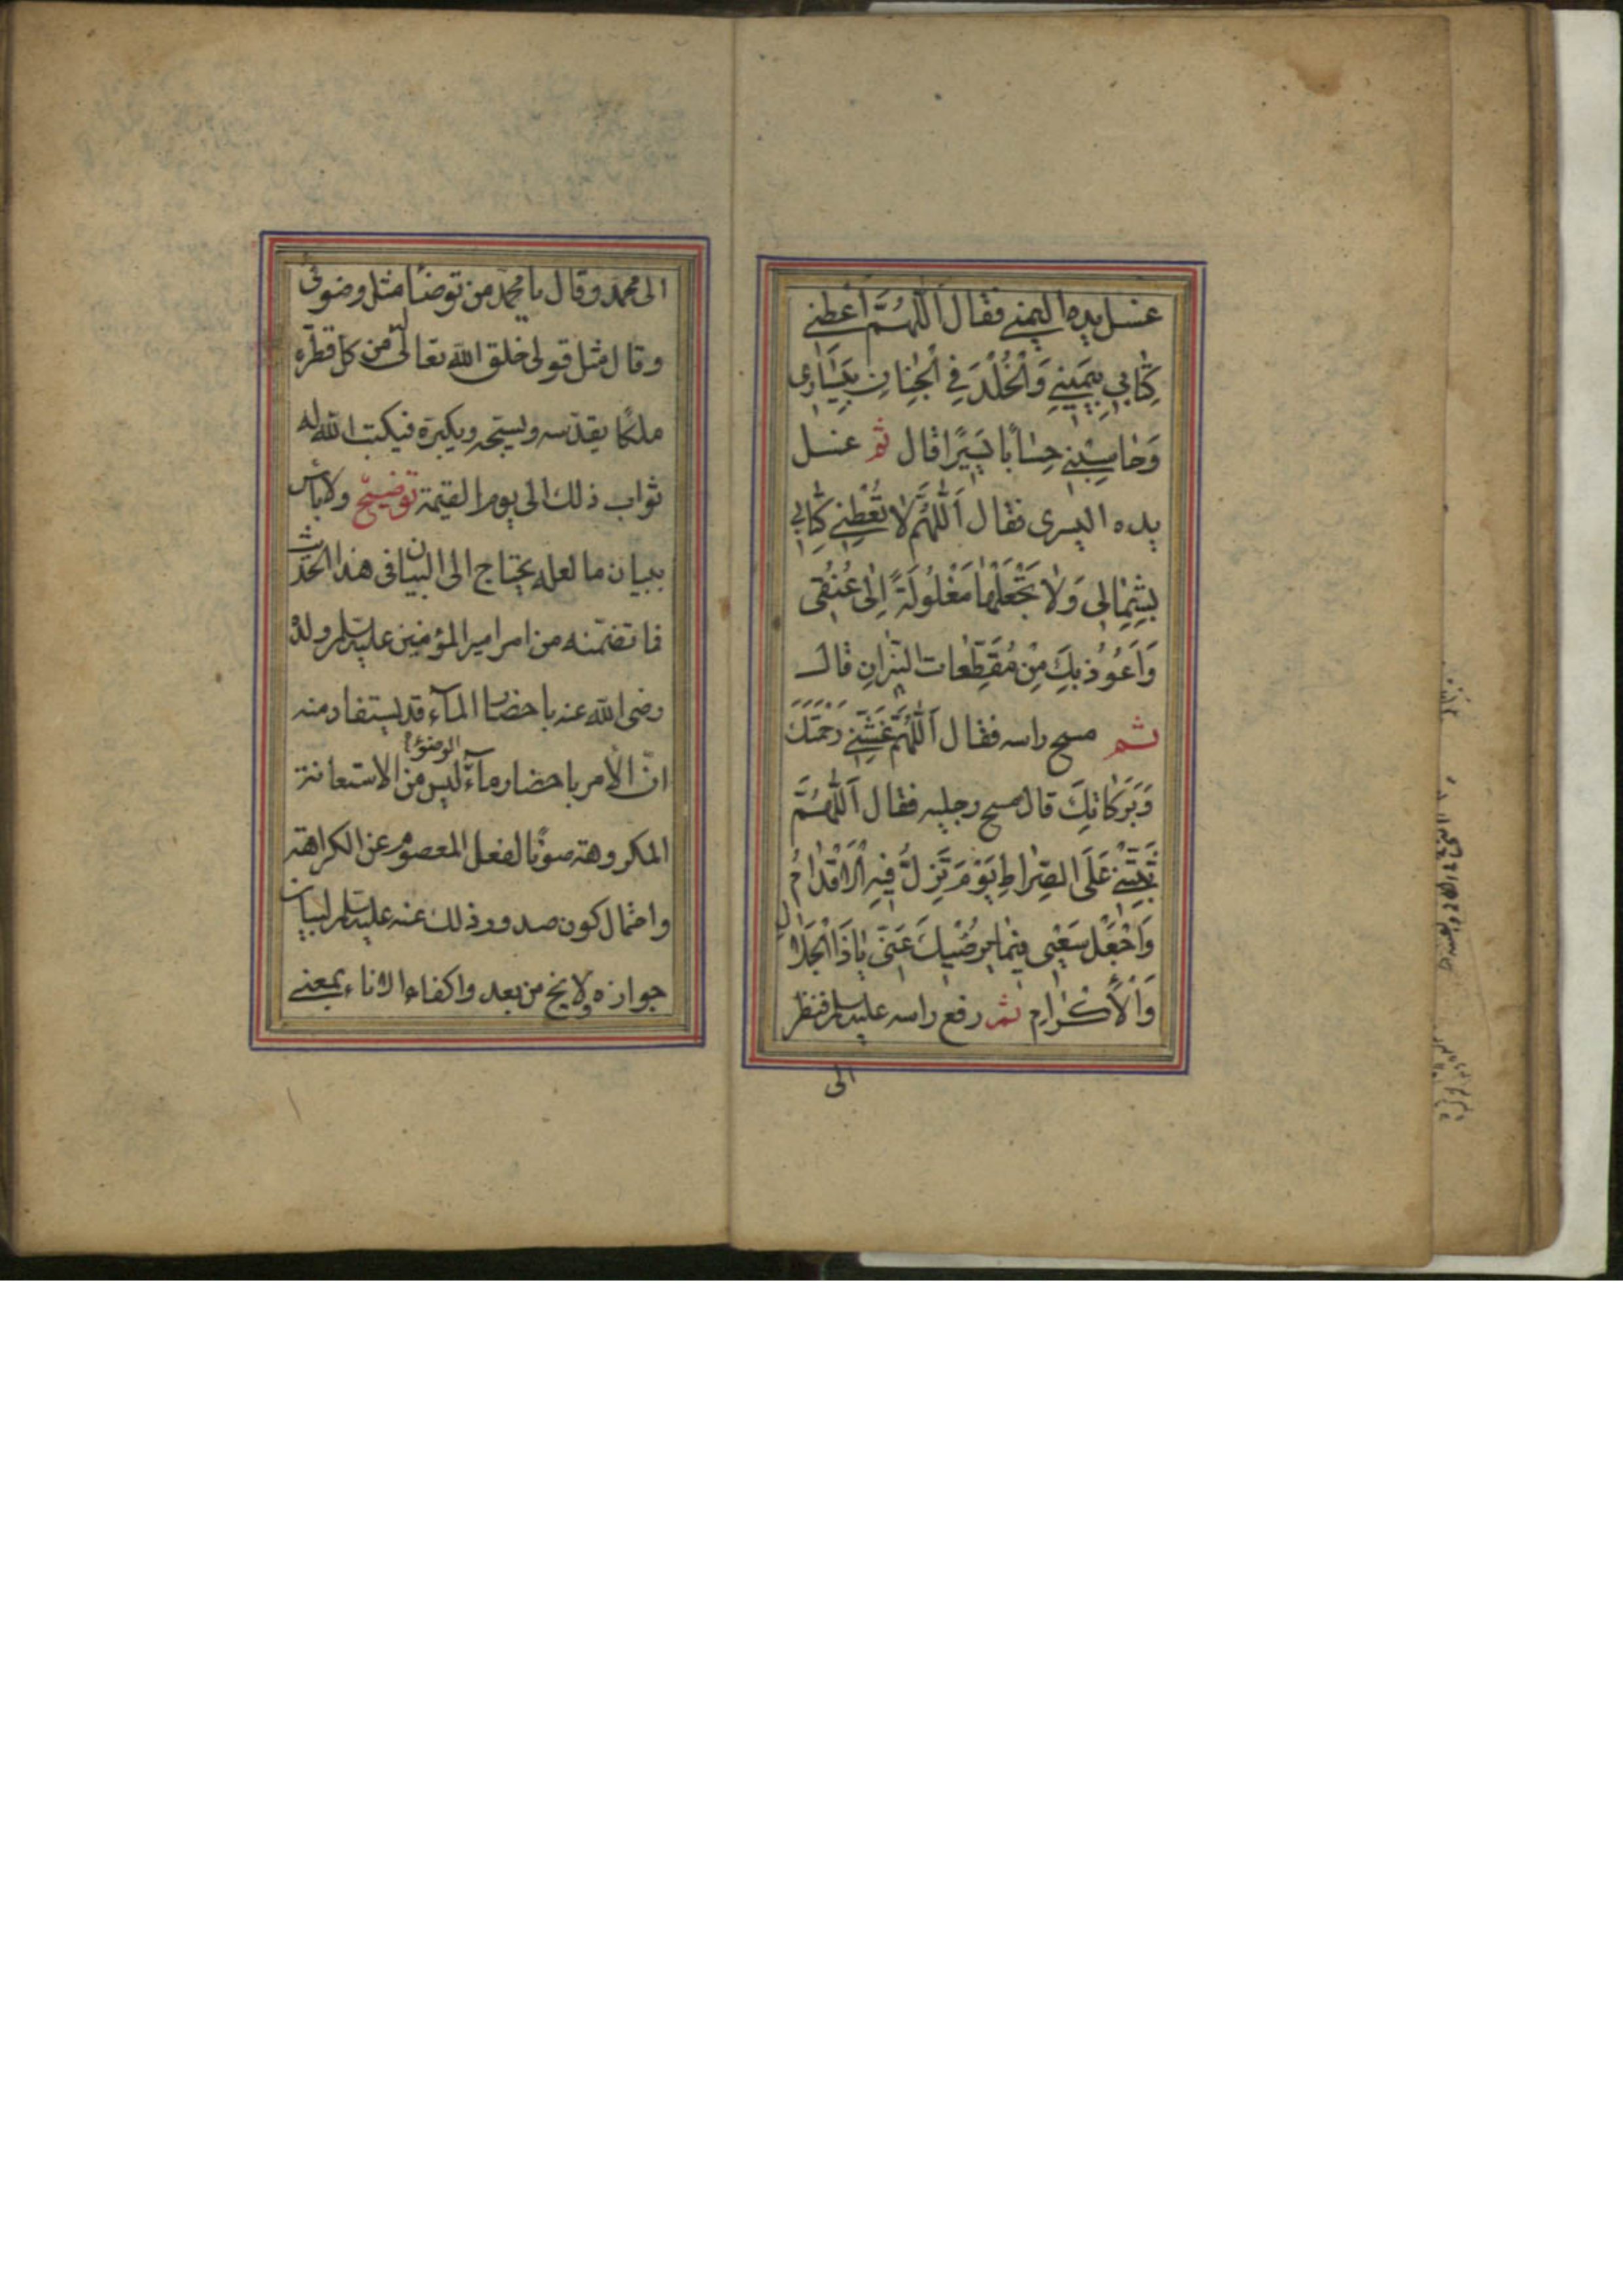 غسل يده اليمنى فقال اَللّٰهُمَّ اَعْطِنِي
كِتٰابِي بِيَمِينِي وَالْخُلْدَ فِي الْجِنٰانِ بِيَسٰارِى
وَحٰاسِبْنِي حِسٰابًا يَسِيرًا قال ثم غسل
يده اليسرى فقال اَللّٰهُمَّ لٰا تُعْطِنِي كِتٰابِي
بِشِمٰالِي وَلٰا تَجْعَلْهٰا مَغْلُولَةً اِلىٰ عُنُقِى
وَاَعُوذُ بِكَ مِنْ مُقَطِّعٰاتِ النِّيرٰانِ قال
ثم مسح راسه فقال اَللّٰهُمَّ غَشِّنِي رَحْمَتَكَ
وَبَرَكٰاتِكَ قال مسح رجليه فقال اَللّٰهُمَّ
ثَبِّتْنِي عَلَى الصِّرٰاطِ يَوْمَ تَزِلُّ فِيهِ الْاَقْدٰامُ
وَاجْعَلْ سَعْيِى فِيمٰا يُرْضِيكَ عَنِّى يٰا ذَا الْجَلٰالِ
وَالْاِكْرٰامِ ثم رفع راسه عليه السلم فنظر
الى
الى محمد وقال يا محمد من توضأ مثل وضوئى
وقال مثل قولى خلق الله تعالى له من كل قطرة
ملكًا يقدّسه ويسبّحه ويكبّره فيكتب الله له
ثواب ذلك الى يوم القيمة توضيح ولا باس
ببيان ما لعله يحتاج الى البيان فى هذا الحديث
فما تضمّنه من امر امير المؤمنين عليه السلم ولده
رضى الله عنه باحضار المآء قد يستفاد منه
انّ الأمر باحضار مآء الوضوء ليس من الاستعانة
المكروهة صونًا لفعل المعصوم عن الكراهة
واحتمال كون صدور ذلك عنه عليه السلم لبيان
جوازه ولا يخ من بعد واكفاء الاناء بمعنى